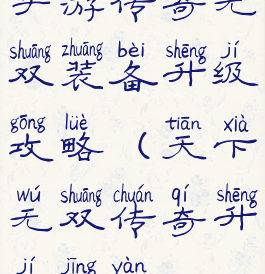 字 游 传 奇 无
shuāng zhuāng bèi shēng jí
双 装 备 升 级
gōng lüè tiān xià
攻 略 （ 天 下
wú shuāng chuán qí shēng
无 双 传 奇 升
jí jīng yàn